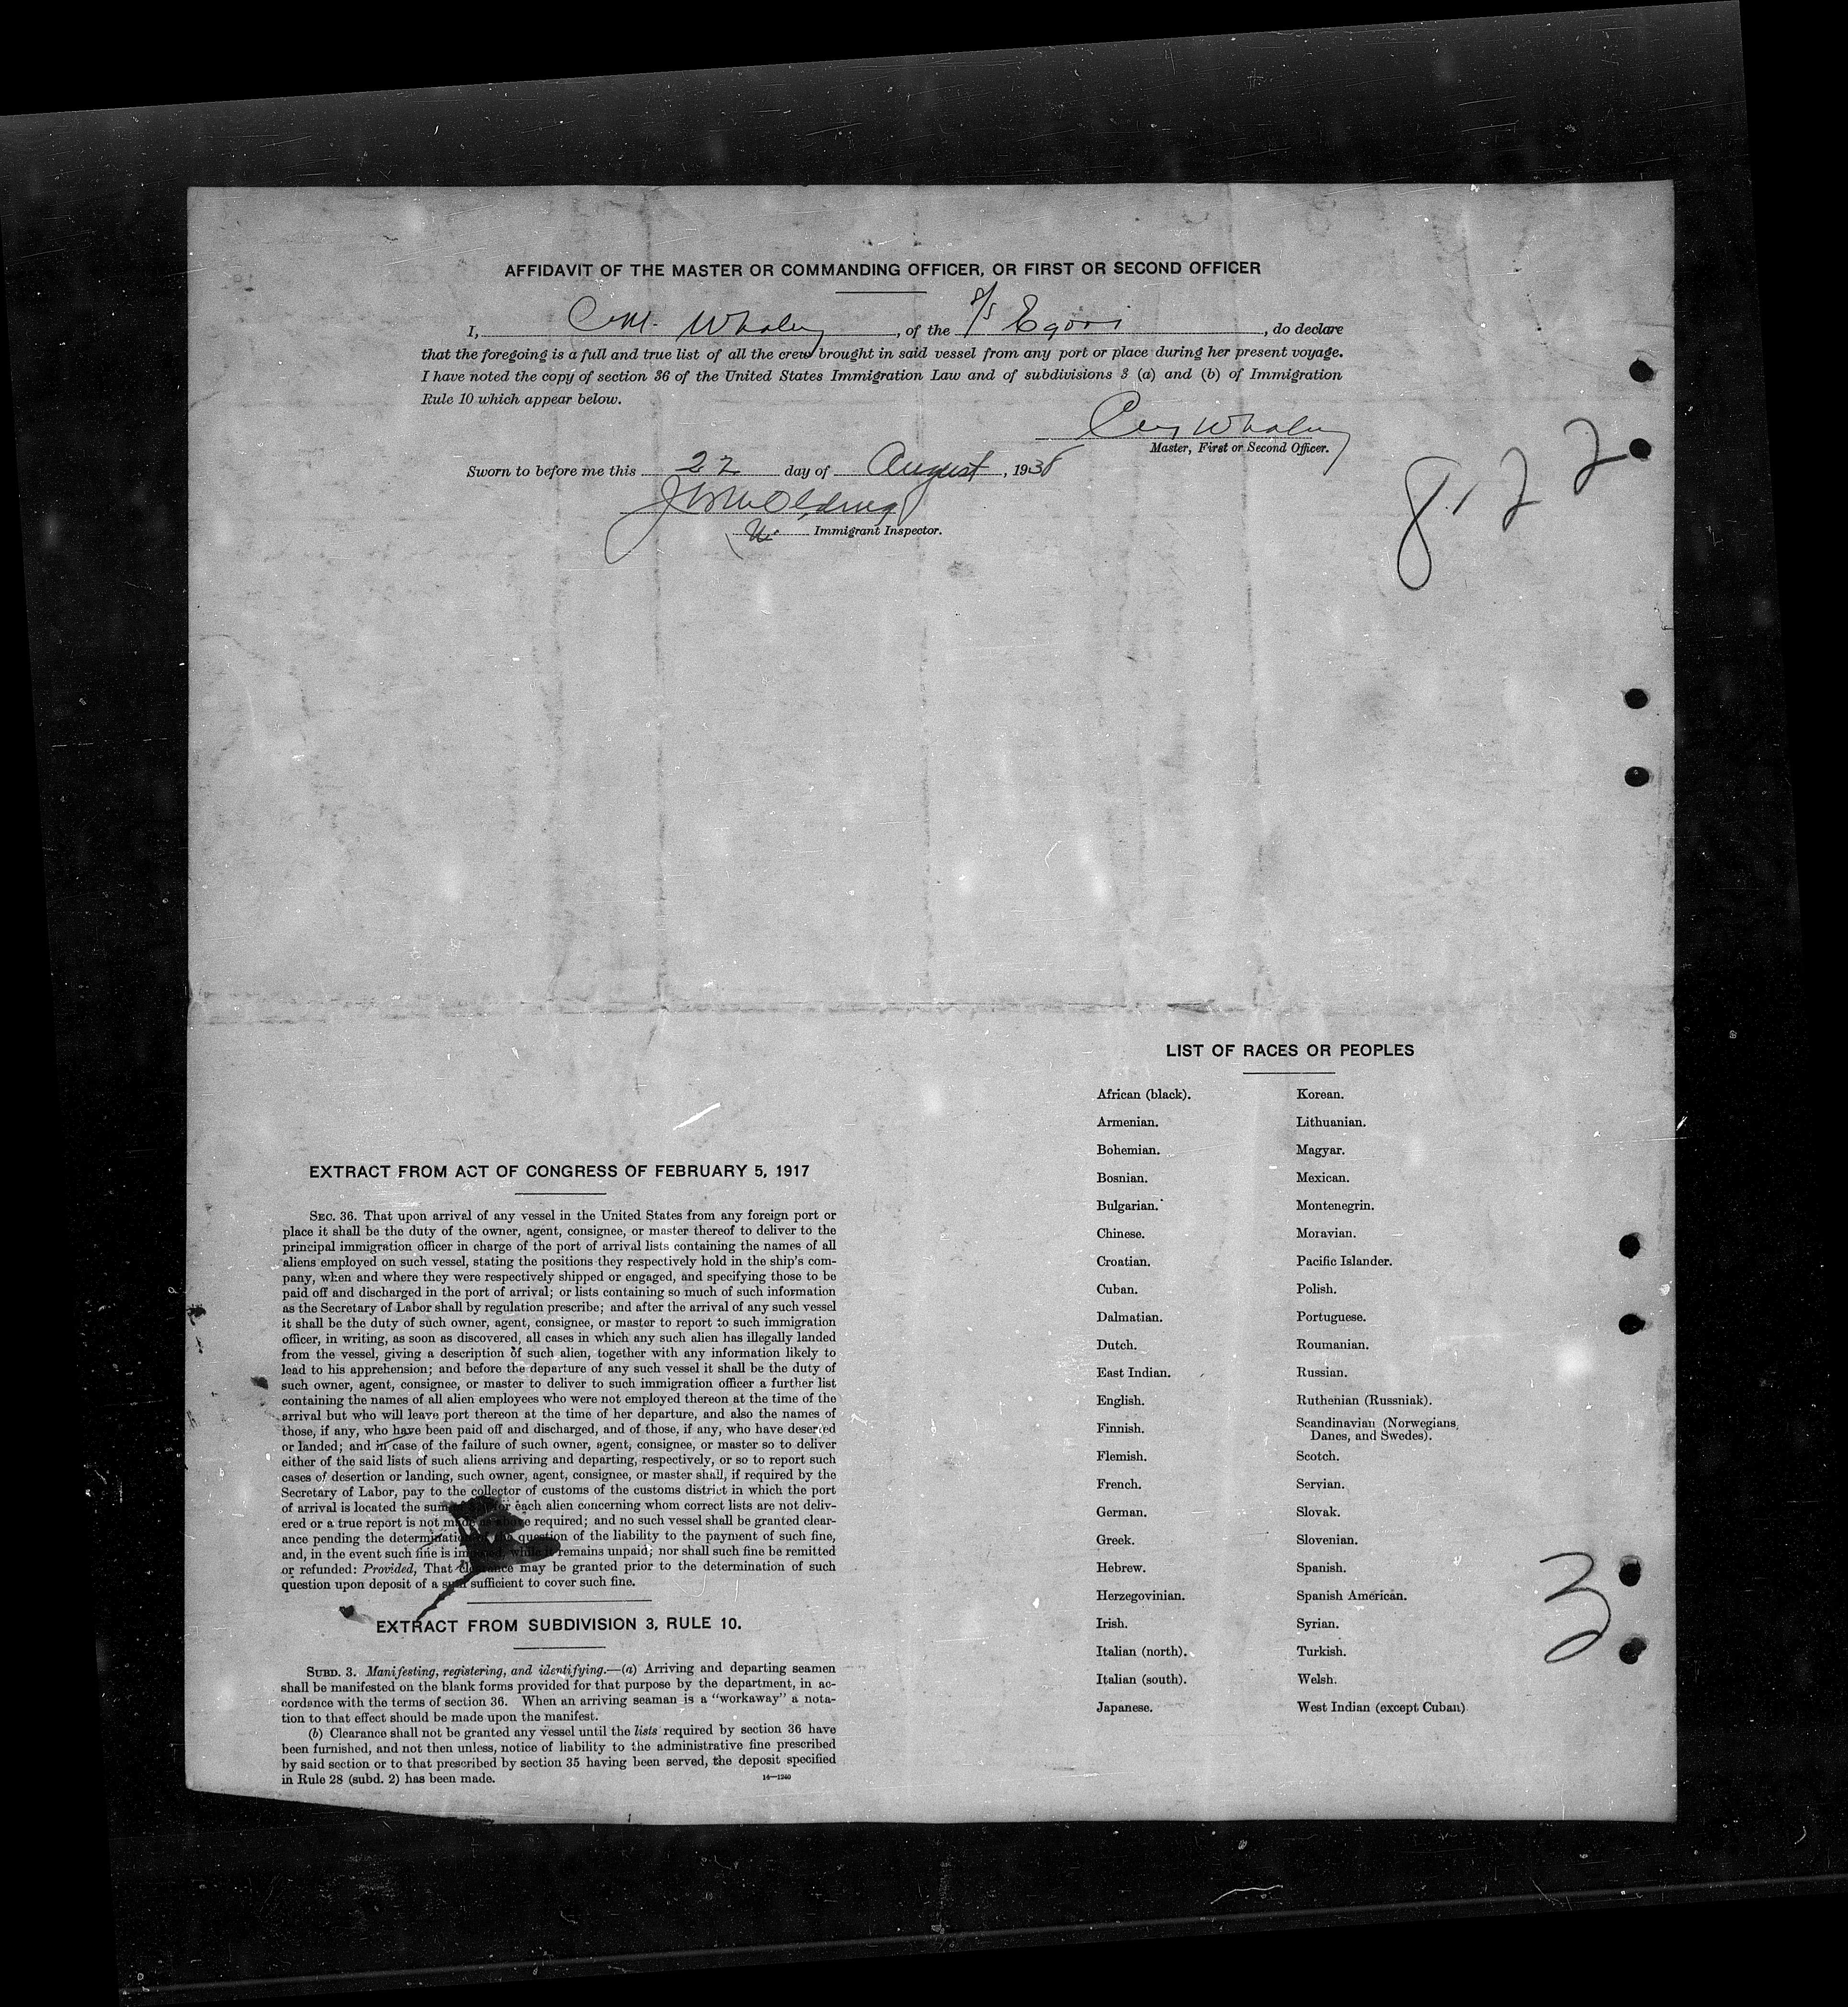 AFFIDAVIT OF THE MASTER OR COMMANDING OFFICER, OR FIRST OR SECOND OFFICER
I, C M. Whaley, of the S/S, do declare
that the foregoing is a full and true list of all the crew brought in said vessel from any port or place during her present voyage.
I have noted the copy of section 36 of the United States Immigration Law and of subdivisions 3 (a) and (b) of Immigration
Rule 10 which appear below.
Whaley
Master, First or Second Officer.
Sworn to before me this 22 day of August, 1938
Immigrant Inspector.
8.22
LIST OF RACES OR PEOPLES
African (black).
Armenian.
Bohemian.
Bosnian.
Bulgarian.
Chinese.
Croatian.
Cuban.
Dalmatian.
Dutch.
East Indian.
English.
Finnish.
Flemish.
French.
German.
Greek.
Hebrew.
Herzegovinian.
Irish.
Italian (north).
Italian (south).
Japanese.
Korean.
Lithuanian.
Magyar.
Mexican.
Montenegrin.
Moravian.
Pacific Islander.
Polish.
Portuguese.
Roumanian.
Russian.
Ruthenian (Russniak).
Scandinavian (Norwegians,
Danes, and Swedes).
Scotch.
Servian.
Slovak.
Slovenian.
Spanish.
Spanish American.
Syrian.
Turkish.
Welsh.
West Indian (except Cuban)
3
EXTRACT FROM ACT OF CONGRESS OF FEBRUARY 5, 1917
SEC. 36. That upon arrival of any vessel in the United States from any foreign port or
place it shall be the duty of the owner, agent, consignee, or master thereof to deliver to the
principal immigration officer in charge of the port of arrival lists containing the names of all
aliens employed on such vessel, stating the positions they respectively hold in the ship's com-
pany, when and where they were respectively shipped or engaged, and specifying those to be
paid off and discharged in the port of arrival; or lists containing so much of such information
as the Secretary of Labor shall by regulation prescribe; and after the arrival of any such vessel
it shall be the duty of such owner, agent, consignee, or master to report to such immigration
officer, in writing, as soon as discovered, all cases in which any such alien has illegally landed
from the vessel, giving a description of such alien, together with any information likely to
lead to his apprehension; and before the departure of any such vessel it shall be the duty of
such owner, agent, consignee, or master to deliver to such immigration officer a further list
containing the names of all alien employees who were not employed thereon at the time of the
arrival but who will leave port thereon at the time of her departure, and also the names of
those, if any, who have been paid off and discharged, and of those, if any, who have deserted
or landed; and in case of the failure of such owner, agent, consignee, or master so to deliver
either of the said lists of such aliens arriving and departing, respectively, or so to report such
cases of desertion or landing, such owner, agent, consignee, or master shall, if required by the
Secretary of Labor, pay to the collector of customs of the customs district in which the port
of arrival is located the sum for each alien concerning whom correct lists are not deliv-
ered or a true report is not made as above required; and no such vessel shall be granted clear-
ance pending the determination of the question of the liability to the payment of such fine,
and, in the event such fine is imposed, while it remains unpaid; nor shall such fine be remitted
or refunded: Provided, That clearance may be granted prior to the determination of such
question upon deposit of a sum sufficient to cover such fine.
EXTRACT FROM SUBDIVISION 3, RULE 10.
SUBD. 3. Manifesting, registering, and identifying.—(a) Arriving and departing seamen
shall be manifested on the blank forms provided for that purpose by the department, in ac-
cordance with the terms of section 36. When an arriving seaman is a "workaway" a nota-
tion to that effect should be made upon the manifest.
(b) Clearance shall not be granted any vessel until the lists required by section 36 have
been furnished, and not then unless, notice of liability to the administrative fine prescribed
by said section or to that prescribed by section 35 having been served, the deposit specified
in Rule 28 (subd. 2) has been made.
14—1240